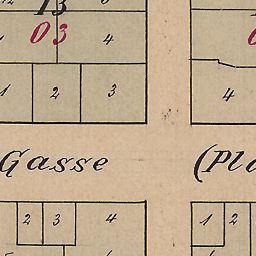 13
03 4
1 2 3 4
Gasse (Pla
2 3 4 1 2